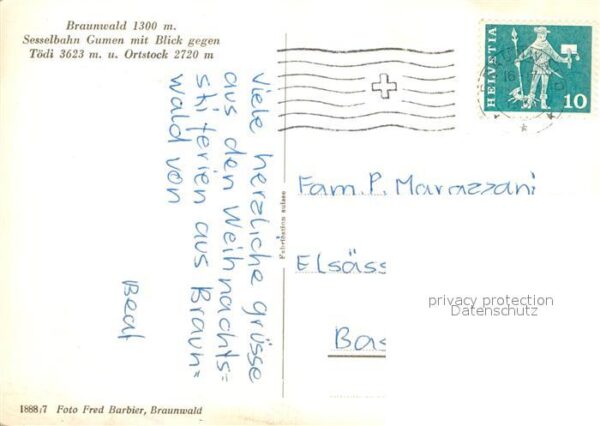 Braunwald 1300 m.
Sesselbahn Gumen mit Blick gegen
Tödi 3623 m. u. Ortstock 2720 m
Viele herzliche grüsse
aus den Weihnachts=
ski ferien aus Braun=
wald von
Beat
1888/7 Foto Fred Barbier, Braunwald
Fabrikation suisse
HELVETIA
10
16
Fam. P. Marazzani
Elsäss
Bas
privacy protection
Datenschutz